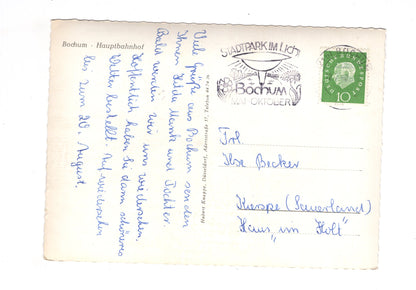 Bochum - Hauptbahnhof
Viele Grüße aus Bochum senden
Ihnen Hilda Mantz und Tochter.
Bald werden wir uns wiedersehen.
Hoffentlich haben Sie dann schöneres
Wetter bestellt. Auf wiedersehen
bis zum 20. August.
STADTPARK IM LICHT
Bochum
MAI-OKTOBER
DEUTSCHE BUNDESPOST
10
Frl.
Ilse Becker
Kierspe (Sauerland)
Haus „im Holt"